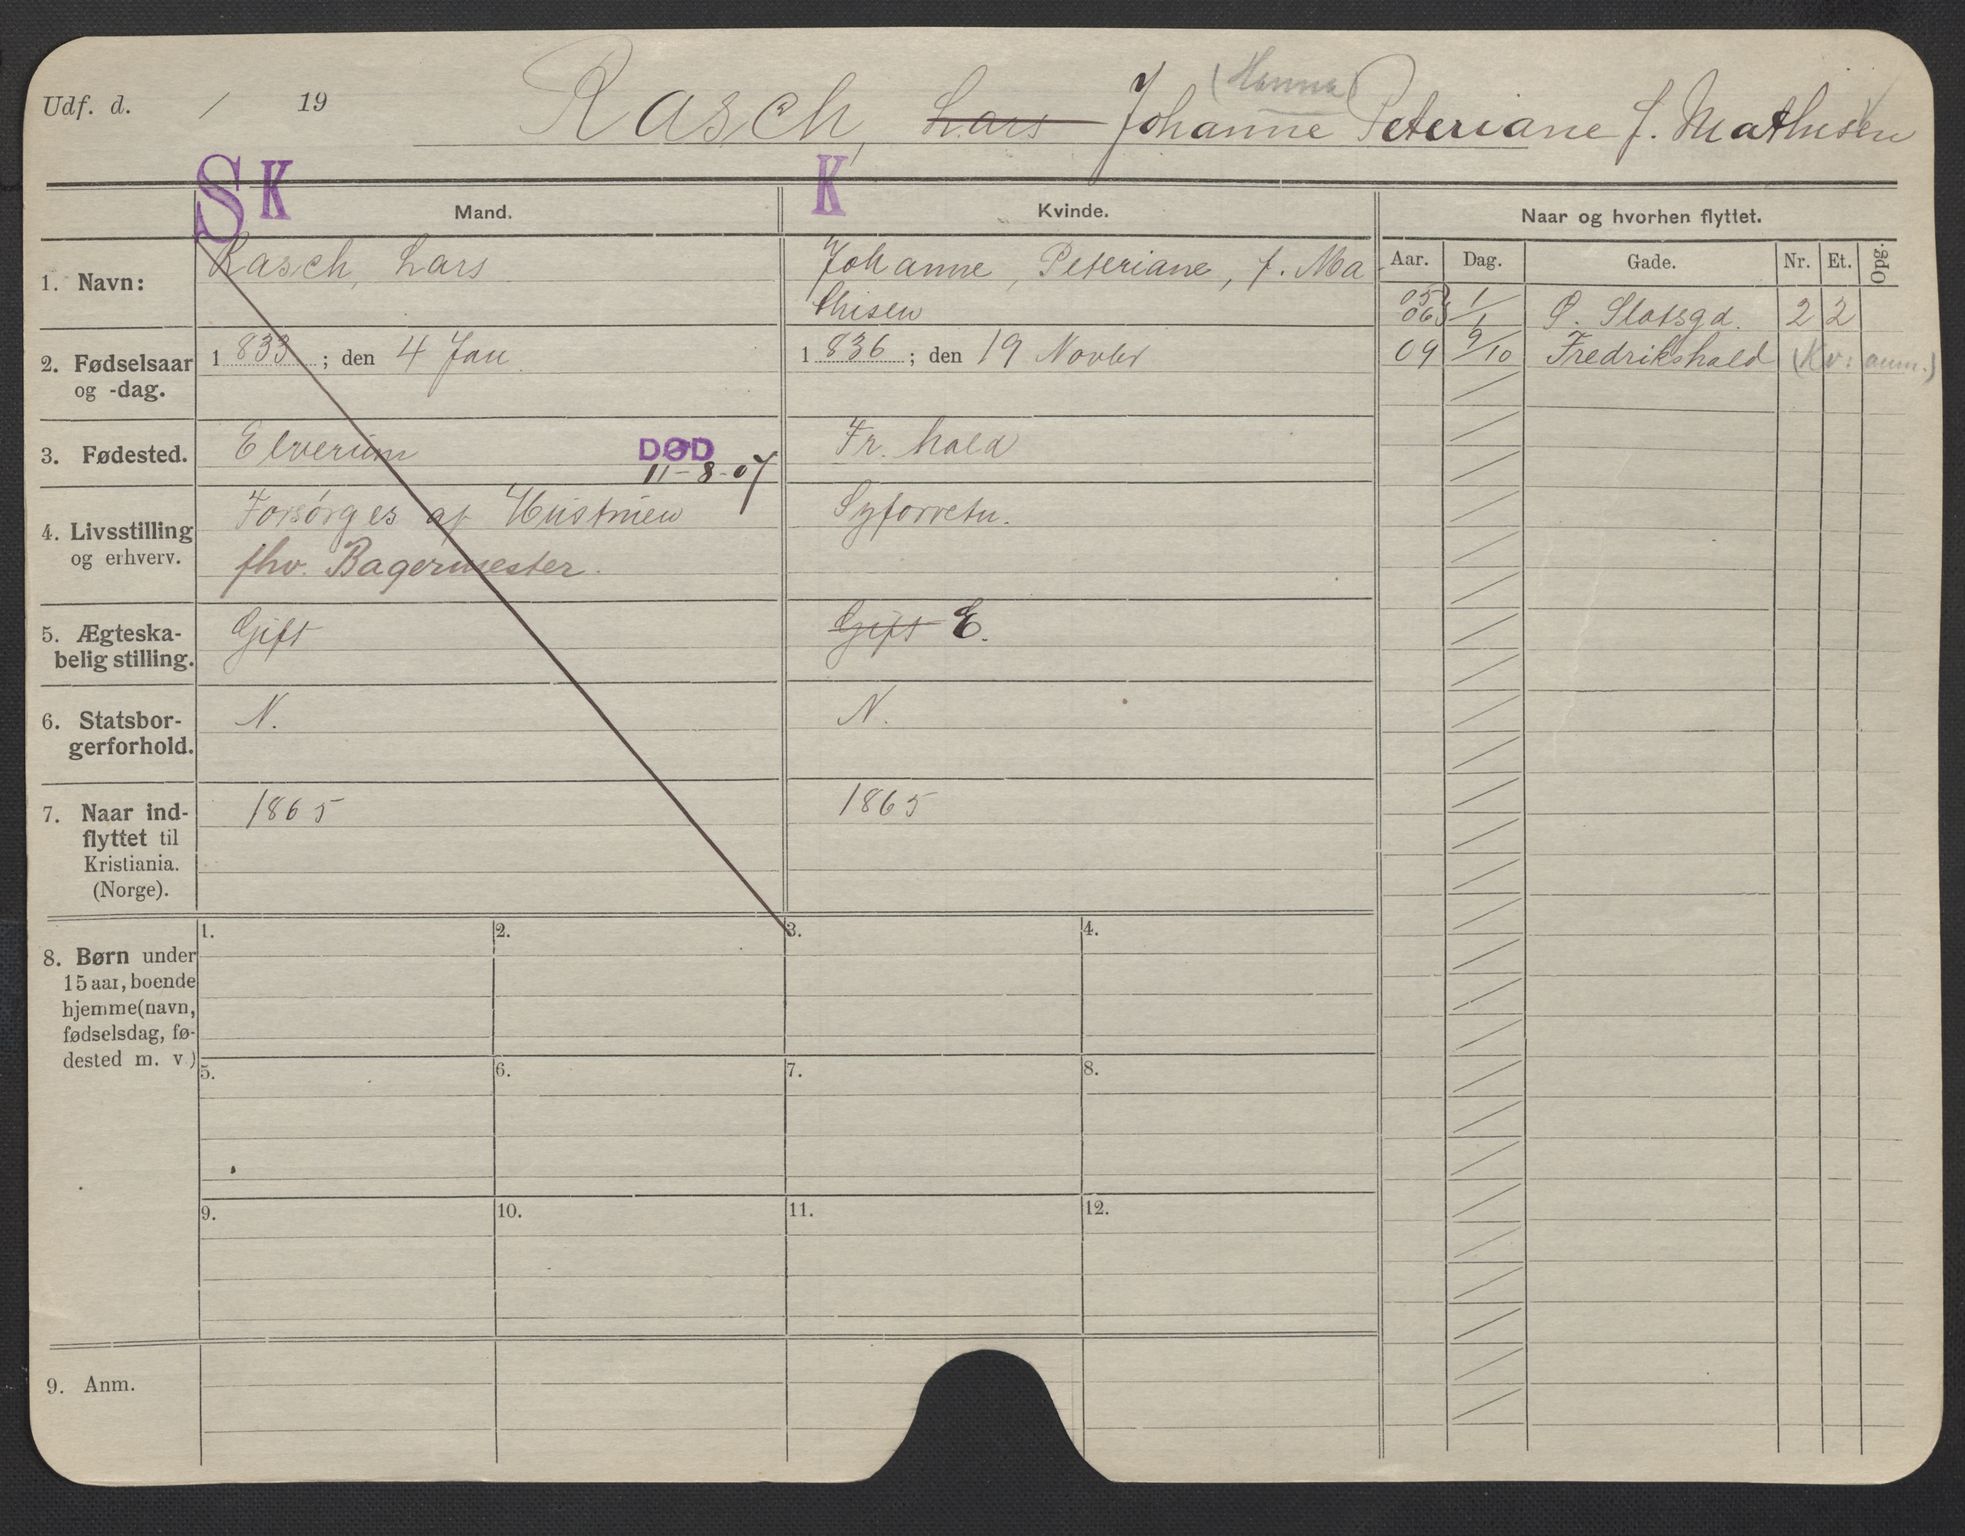 Udf. d. / 19
Rasch, Lars Johanne (Hanna) Peteriane f. Mathisen
S K K
Mand. Kvinde. Naar og hvorhen flyttet.
Aar. Dag. Gade. Nr. Et. Opg.
1. Navn: Rasch, Lars Johanne, Peteriane, f. Ma
thisen
05 1/1
06 Ø. Slotsgd. 2 2
09 9/10 Fredrikshald (Kv: anm.)
2. Fødselsaar
og -dag.
1833 ; den 4 Jan 1836 ; den 19 Novbr
3. Fødested. Elverum DØD Fr. hald
11-8-07
4. Livsstilling
og erhverv.
Forsørges af Hustruen Syforretn.
fhv. Bagermester.
5. Ægteska-
belig stilling.
Gift Gift E.
6. Statsbor-
gerforhold.
N. N.
7. Naar ind-
flyttet til
Kristiania.
(Norge).
1865 1865
8. Børn under
15 aar, boende
hjemme (navn,
fødselsdag, fø-
dested m. v.)
1. 2. 3. 4.
5. 6. 7. 8.
9. 10. 11. 12.
9. Anm.